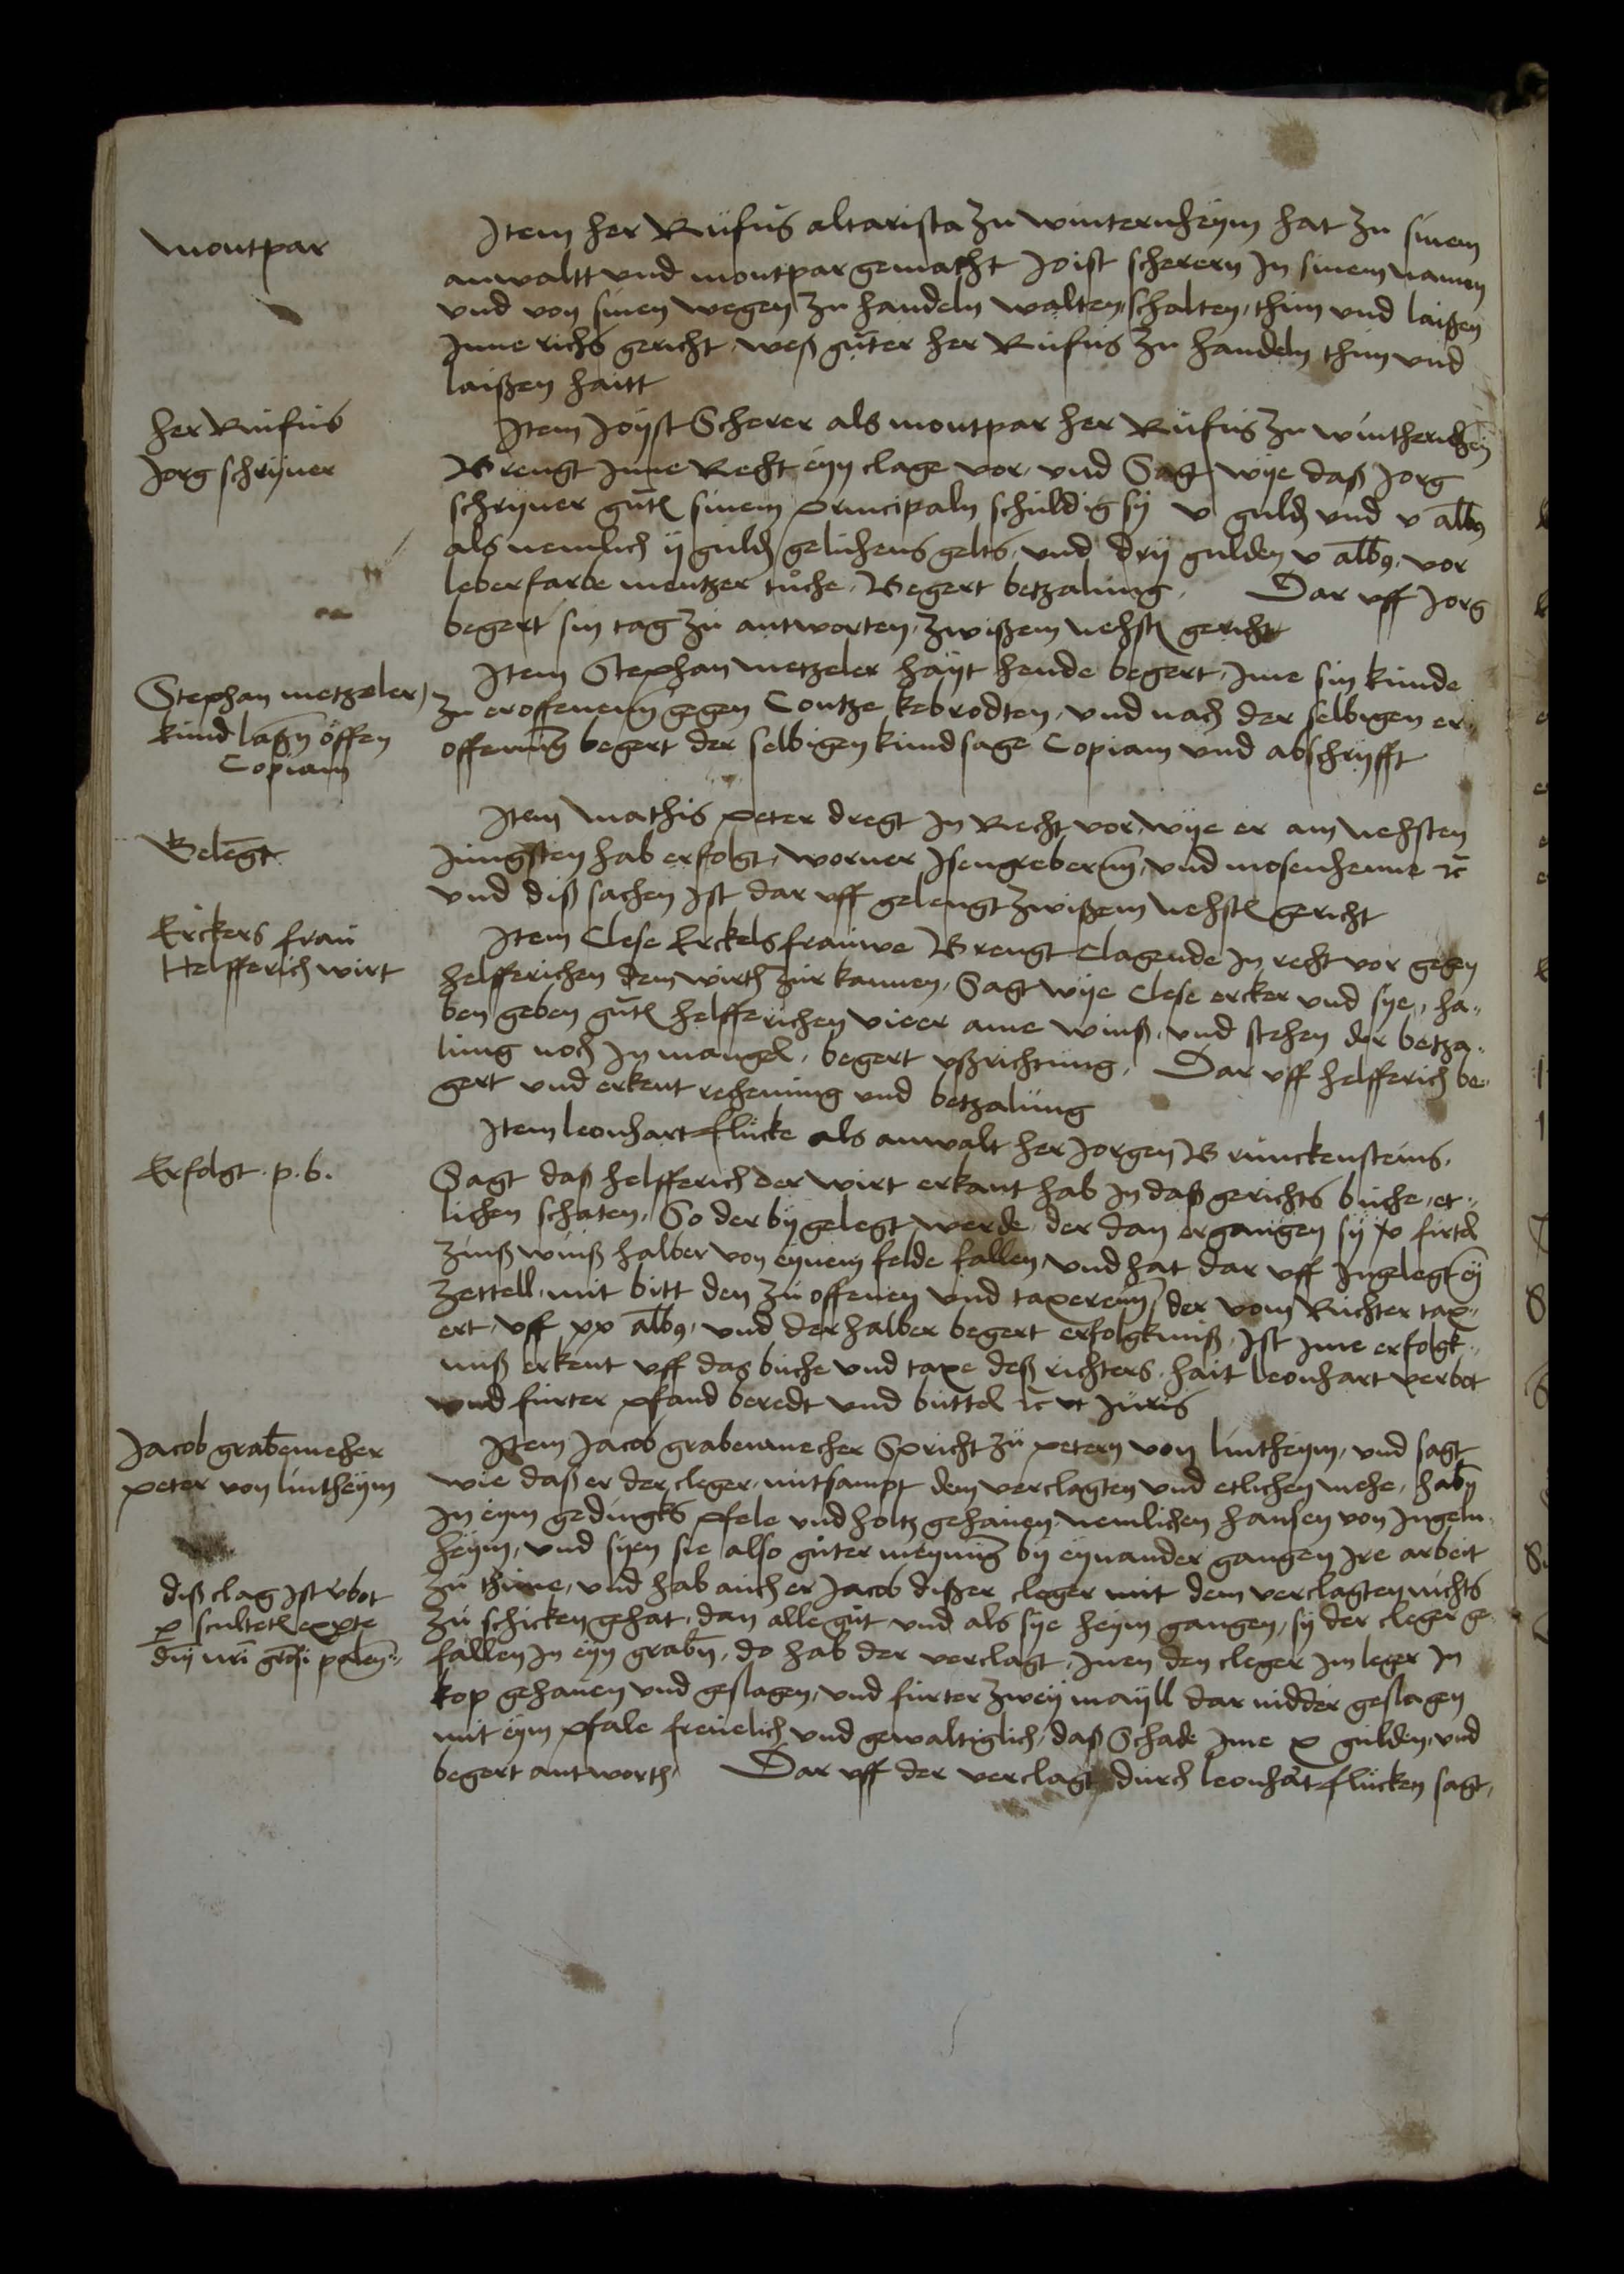 Montpar
Item her Rüfus altarista zu winternheym hat zu sinem
anwaltt und montpar gemacht Joist scherern In sinem namen
und von sinen wegen zu handeln walten, schalten, thun und laißen
Inne richs gericht, weß guter her Rüfus zu handeln thun und
laißen haitt
her Rufus
Jorg schryner
Item Joyst Scherer als montpar her Rüfus zu wintherneheym
Brengt Inne Recht eyn clage vor, und Sagt wye daß Jorg
schryner gutt sinem principaln schuldig sy v guld und v albus
als nemlich ij guld gelihens gelts, und drij gulden v albus, vor
leberfarbe mentzer tuche, Begert betzalung. Dar uff Jorg
begert sin tag zu antworten, zwißem nehst gericht
Stephan metzeler
kund lasen offen
Copiam
Item Stephan metzeler hayt hende begert, Ime sin kunde
zu eroffenen gegen Contze kebrodten, und nach der selbigen er
offenung begert der selbigen kundsage Copiam und abschryfft
Gelengt
Item Mathis peter dregt In Recht vor, wye er am nehsten
Jungsten hab erfolgt, worner Isengreberin, und mosenhenne etc
und diß sachen Ist dar uff gelengt zwißem nehst gericht
Erckers frau
Helfferich wirt
Item Clese Erckels frauwe Brengt Clagende In recht vor gegen
helfferichen dem wirth zur kannen, Sagt wye Clese ercker und sye, ha
ben geben gutt helfferichen vieer ame winß, und stehen der betza
lung noch In mangel, begert ußrichtung. Dar uff helfferich be
gert und erkent rechenung und betzalung
Erfolgt . p. b.
Item leonhart flücke als anwalt her Jorgen Brunckensteins,
Sagt daß helfferich der wirt erkant hab In daß gerichts buche, et
lichen schaten, So derby gelegt werde, der dan ergangen sy firtel
zinß winß halber von eynem felde fallen, und hat dar uff Ingelegt ey
zettell, mit bitt den zu offenen und taxeren, der vom Richter tax
ert, uff xx albus, und der halber begert erfolgkniß, Ist Ime erfolgk
niß erkent uff das buche und taxe deß richters, hait leonhart verbot
und furter pfand beredt und buttel etc ut Juris
Jacob grabenmecher
peter von lintheym
Item Jacob grabenmecher Spricht zu petern von lintheym, und sagt
wie daß er der cleger, mitsampt dem verclagten und etlichen mehe, haben
In eym gedingts pfele und holtz gehauen, nemlichen hansen von Ingeln
heym, und syen sie also guter meynung by eynander gangen Ire arbeit
diß clag Ist verbot
per scultet ex parte
zu thune, und hab auch er Jacob dißer cleger mit dem verclagten nichts
zu schicken gehat, dan alle gut und als sye heym gangen, sy der cleger ge
fallen In eyn graben, do hab der verclagt, Inen den cleger Im leger In
kop gehauen und geslagen, und furter zwey mayll dar nidder geslagen
mit eym pfale freuelich und gewaltiglich, daß Schade Ime x gulden, und
begert antworth. Dar uff der verclagt durch leonhart flücken sagt,